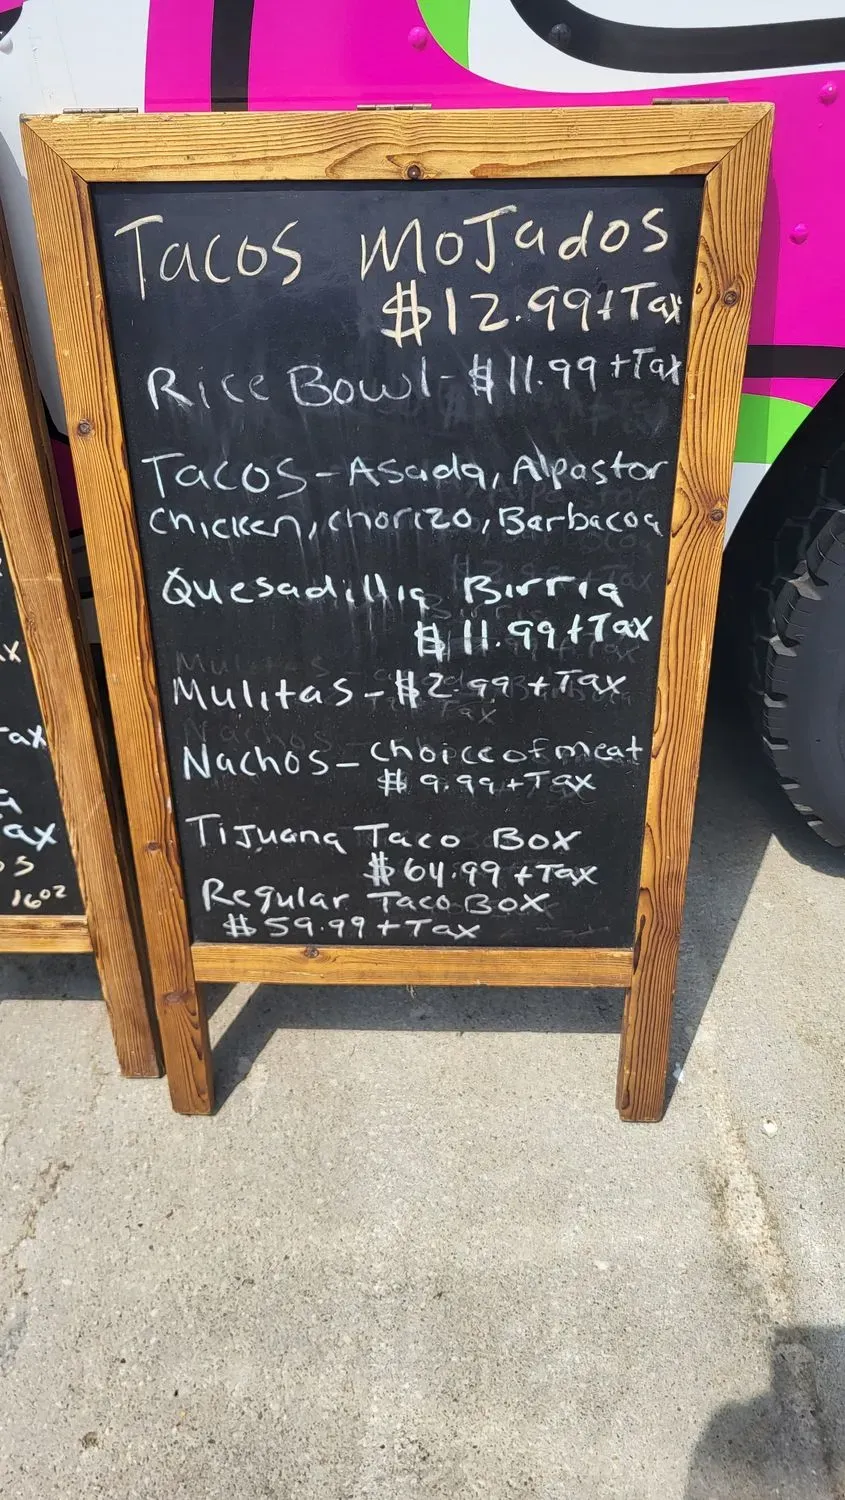 Tacos MoJados
$12.99+Tax
Rice Bowl-$11.99+Tax
Tacos-Asada, Alpastor
chicken, chorizo, Barbacoa
Quesadilla Birria
$11.99+Tax
Mulitas-$2.99+Tax
Nachos-choice of meat
$9.99+Tax
Tijuana Taco Box
$64.99+Tax
Regular Taco Box
$59.99+Tax
ax
16oz